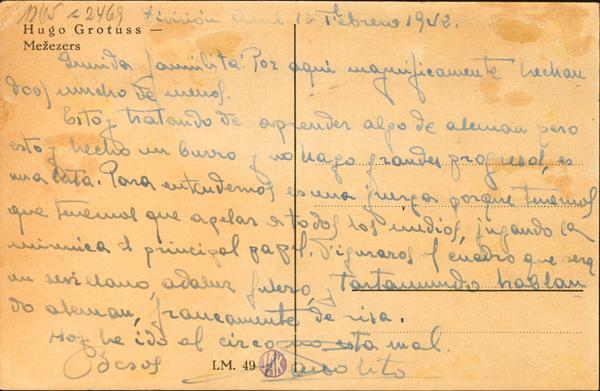 1265 c 2469
Hugo Grotuss —
Mežezers
División Azul 12 Febrero 1942.
Querida familita: Por aqui magnificamente hechan
doos mucho de menos.
Estoy tratando de aprender algo de aleman pero
estoy hecho un burro y no hago grandes progresos, es
una lata. Para entendernos es una juerga porque tenemos
que tenemos que apelar a todos los medios, jugando la
mimica el principal papel. Figuraros el cuadro que sera
un sevillano, andaluz y tartamundo hablan
do aleman, francamente de risa.
Hoy he ido al circo no esta mal.
Besos
LM. 49